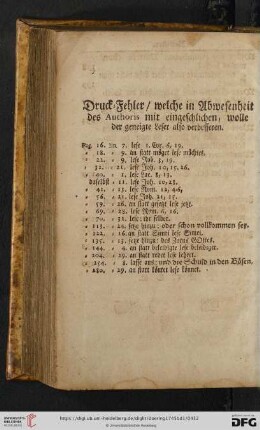 Druck-Fehler / welche in Abwesenheit
des Authoris mit eingeschlichen, wolle
der geneigte Leser also verbessern.
Pag. 16. lin. 7. lese 1. Cor. 6, 19.
18. 9. an statt möget lese möchtet.
22. 9. lese Job. 3, 15.
32. 21. lese Joh. 10, 15. 28.
40. 1. lese Luc. 8, 13.
daselbst 11. lese Joh. 10, 28.
41. 13. lese Rom. 12, 4.6,
56. 21. lese Joh. 21, 15.
59. 28. an statt gesetzt lese jetzt.
69. 18. lese Rom. 6, 16.
70. 31. lese: ihr sollet.
113. 20. setze hinzu: oder schon vollkommen sey.
122. 16. an statt Simei lese Simei.
135. 13. setze hinzu: des Zorns GOttes.
144. 4. an statt beleidigte lese beleidiget.
204. 29. an statt redet lese lehret.
254. 8. lasse aus: und die Schuld in den Bösen.
280. 29. an statt könnt lese könnet.